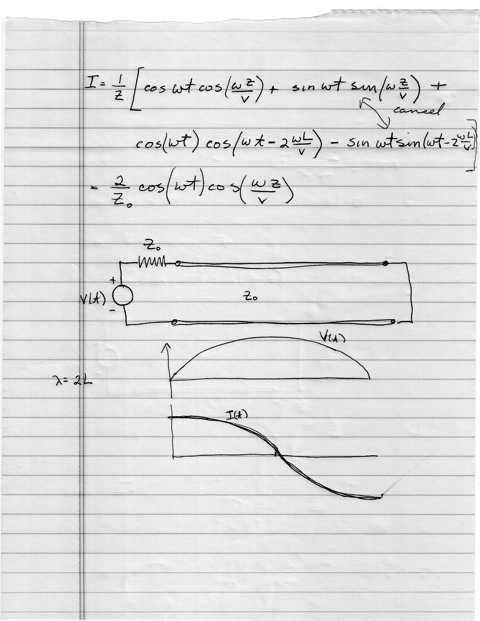 I = 1/Z [ cos ωt cos(ω z/v) + sin ωt sin(ω z/v) +
cancel
cos(ωt) cos(ωt - 2 ωL/v) - sin ωt sin(ωt - 2 ωL/v) ]
= 2/Z₀ cos(ωt) cos(ωz/v)
Z₀
+
V(t)
Z₀
-
V(t)
λ = 2L
I(t)